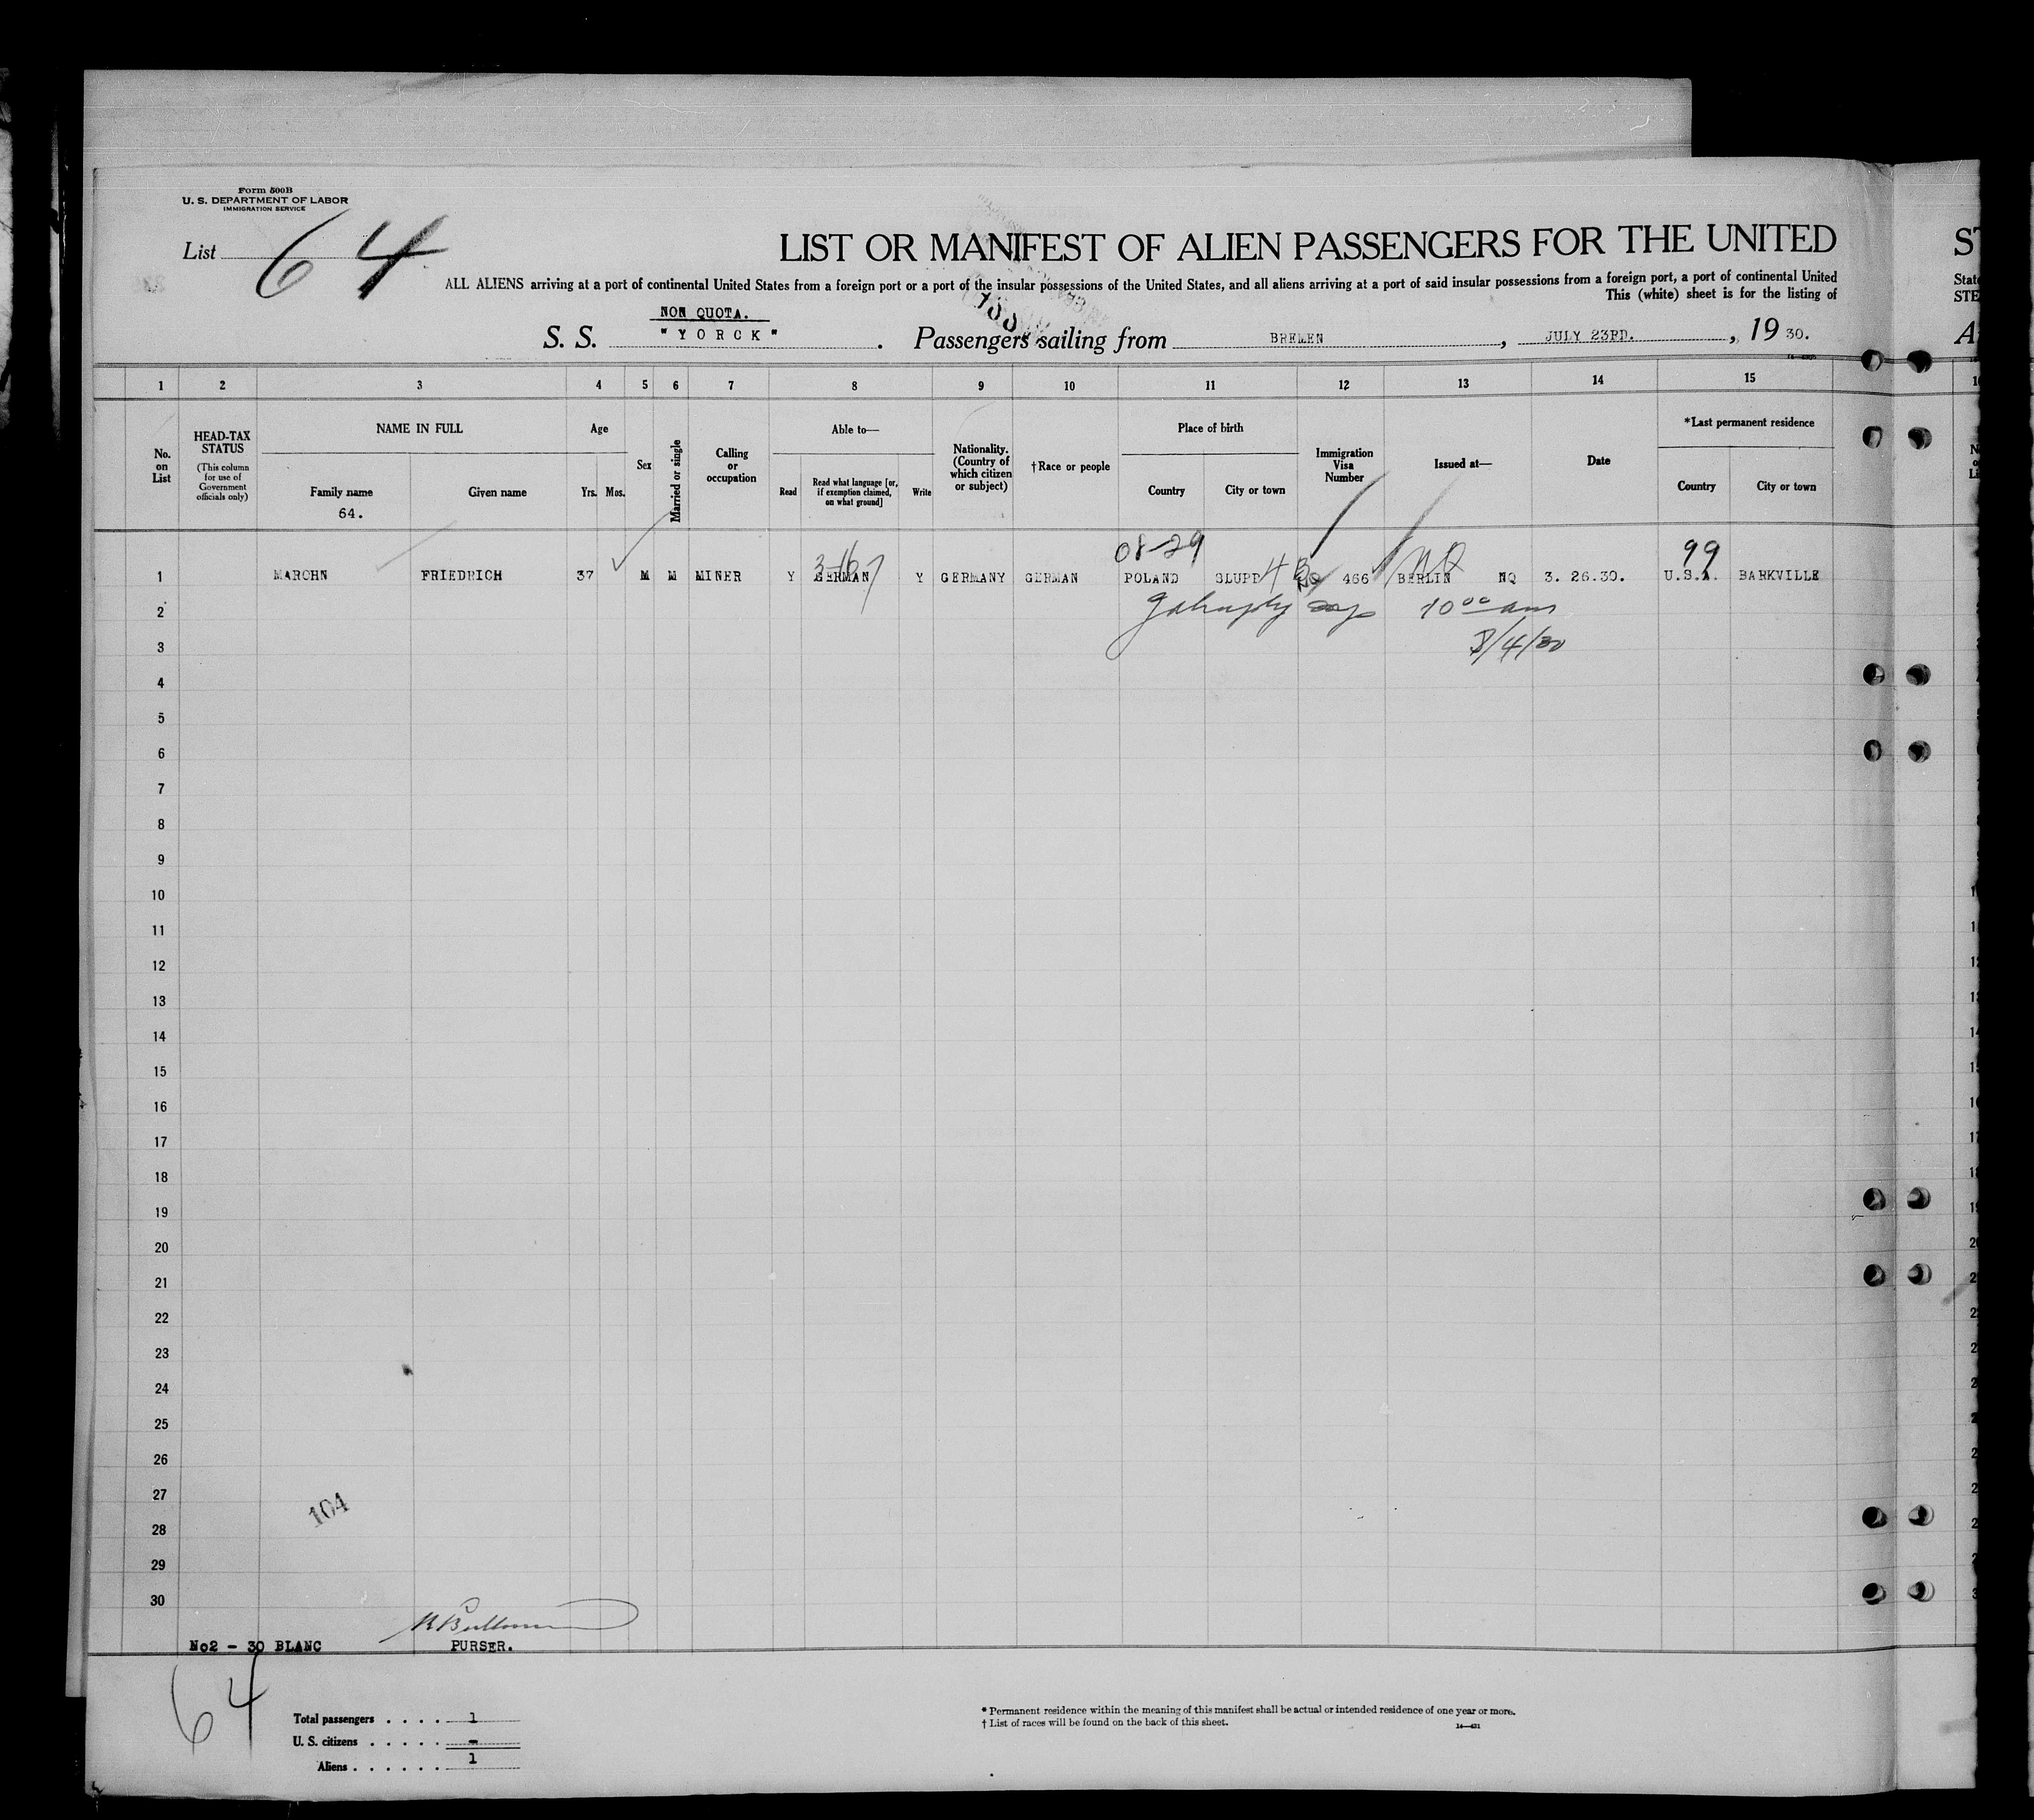 Form 500B
U. S. DEPARTMENT OF LABOR
IMMIGRATION SERVICE
List 64
LIST OR MANIFEST OF ALIEN PASSENGERS FOR THE UNITED
ALL ALIENS arriving at a port of continental United States from a foreign port or a port of the insular possessions of the United States, and all aliens arriving at a port of said insular possessions from a foreign port, a port of continental United
This (white) sheet is for the listing of
NON QUOTA.
S. S. "YORCK". Passengers sailing from BREMEN, JULY 23RD., 19 30.
1 2 3 4 5 6 7 8 9 10 11 12 13 14 15
No. on List
HEAD-TAX STATUS
(This column for use of Government officials only)
NAME IN FULL
Family name
64.
Given name
Age
Yrs. Mos.
Sex
Married or single
Calling or occupation
Able to—
Read
Read what language [or, if exemption claimed, on what ground]
Write
Nationality. (Country of which citizen or subject)
†Race or people
Place of birth
Country
City or town
Immigration Visa Number
Issued at—
Date
*Last permanent residence
Country
City or town
08-29
99
1 MAROHN FRIEDRICH 37 M M MINER Y GERMAN Y GERMANY GERMAN POLAND SLUPP NQ 466 BERLIN NQ 3. 26.30. U.S.A. BARKVILLE
2 10 00 am
3 8/4/30
4
5
6
7
8
9
10
11
12
13
14
15
16
17
18
19
20
21
22
23
24
25
26
27
104
28
29
30
No2 - 30 BLANC PURSER.
64
Total passengers . . . . 1
U. S. citizens . . . . . -
Aliens . . . . . . 1
* Permanent residence within the meaning of this manifest shall be actual or intended residence of one year or more.
† List of races will be found on the back of this sheet.